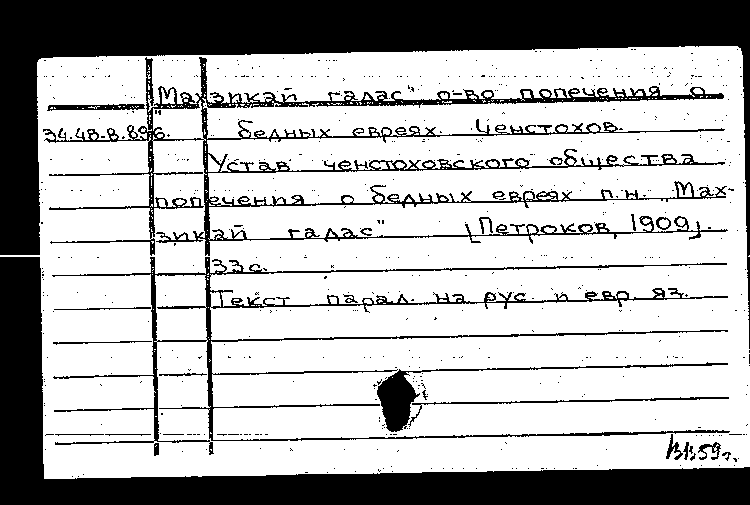 "Махзикай гадас" о-во попечения о
34.4В-В.896. бедных евреях. Ченстохов.
Устав ченстоховского общества
попечения о бедных евреях п.н. „Мах-
зикай гадас" [Петроков, 1909].
33с.
Текст парал. на рус. и евр. яз.